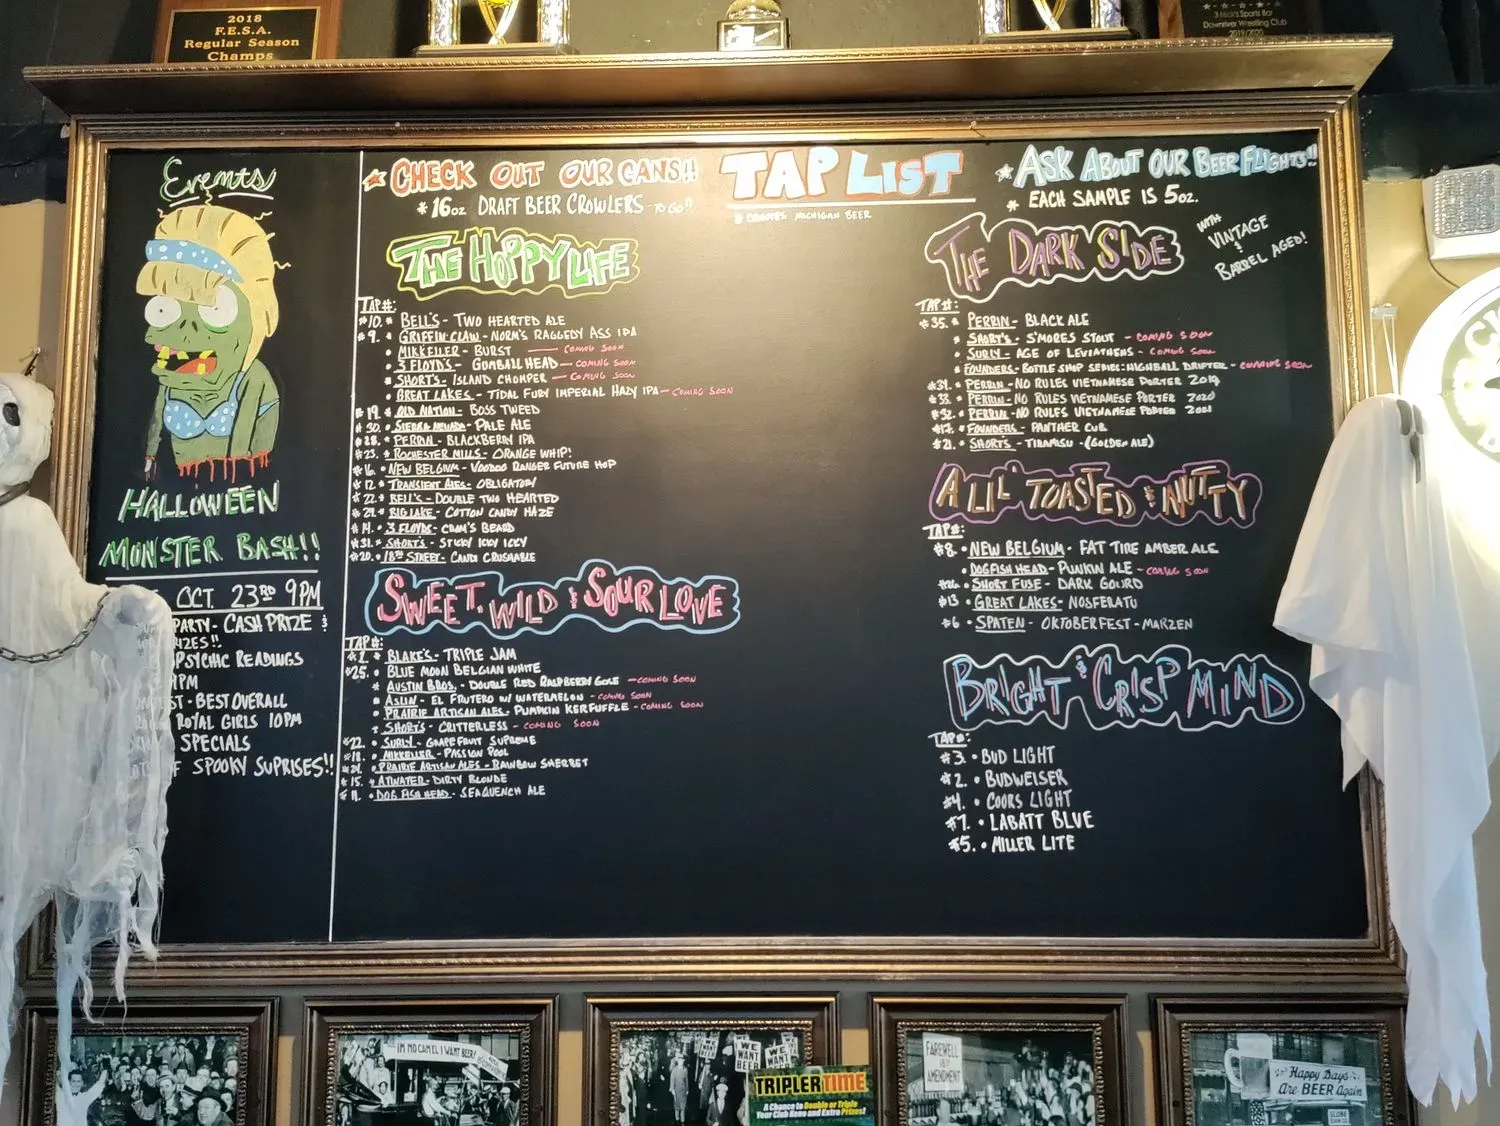 2018
F.E.S.A.
Regular Season
Champs
3 Nick's Sports Bar
Downriver Wrestling Club
2019/2020
Events
HALLOWEEN
MONSTER BASH!!
OCT. 23RD 9PM
PARTY - CASH PRIZE &
PRIZES!!
PSYCHIC READINGS
PM
CONTEST - BEST OVERALL
ROYAL GIRLS 10PM
SPECIALS
LOTS OF SPOOKY SUPRISES!!
CHECK OUT OUR CANS!!
* 16oz DRAFT BEER CROWLERS - TO GO!!
TAP LIST
* DENOTES MICHIGAN BEER
* ASK ABOUT OUR BEER FLIGHTS!!
* EACH SAMPLE IS 5oz.
THE HOPPY LIFE
TAP#:
#10. * BELL'S - TWO HEARTED ALE
#9. * GRIFFIN CLAW - NORM'S RAGGEDY ASS IPA
• MIKKELLER - BURST — COMING SOON
• 3 FLOYDS - GUMBALL HEAD — COMING SOON
* SHORT'S - ISLAND CHOMPER — COMING SOON
• GREAT LAKES - TIDAL FURY IMPERIAL HAZY IPA — COMING SOON
#19. * OLD NATION - BOSS TWEED
#30. • SIERRA NEVADA - PALE ALE
#28. * PERRIN - BLACKBERRY IPA
#23. * ROCHESTER MILLS - ORANGE WHIP!
#16. • NEW BELGIUM - VOODOO RANGER FUTURE HOP
#12 * TRANSIENT ALES - OBLIGATORY
#22. * BELL'S - DOUBLE TWO HEARTED
#29. * BIG LAKE - COTTON CANDY HAZE
#14. • 3 FLOYDS - CROM'S BEARD
#31. * SHORT'S - STICKY ICKY ICKY
#20. • 18TH STREET - CANDI CRUSHABLE
SWEET, WILD & SOUR LOVE
TAP#:
#1. * BLAKE'S - TRIPLE JAM
#25. • BLUE MOON BELGIAN WHITE
* AUSTIN BROS. - DOUBLE RED RASPBERRY GOSE — COMING SOON
• ASLIN - EL FRUTERO W/ WATERMELON — COMING SOON
• PRAIRIE ARTISAN ALES - PUMPKIN KERFUFFLE — COMING SOON
* SHORT'S - CRITTERLESS — COMING SOON
#22. • SURLY - GRAPEFRUIT SUPREME
#18. • MIKKELLER - PASSION POOL
#24. • PRAIRIE ARTISAN ALES - RAINBOW SHERBET
#15. * ATWATER - DIRTY BLONDE
#11. • DOG FISH HEAD - SEAQUENCH ALE
THE DARK SIDE
WITH
VINTAGE
&
BARREL AGED!
TAP#:
#35. * PERRIN - BLACK ALE
* SHORT'S - S'MORES STOUT — COMING SOON
• SURLY - AGE OF LEVIATHENS — COMING SOON
* FOUNDERS - BOTTLE SHOP SERIES: HIGHBALL DRIFTER — COMING SOON
#34. * PERRIN - NO RULES VIETNAMESE PORTER 2019
#33. * PERRIN - NO RULES VIETNAMESE PORTER 2020
#32. * PERRIN - NO RULES VIETNAMESE PORTER 2021
#17. * FOUNDERS - PANTHER CUB
#21. * SHORT'S - TIRAMISU - (GOLDEN ALE)
A LIL' TOASTED & NUTTY
TAP#:
#8. • NEW BELGIUM - FAT TIRE AMBER ALE
• DOGFISH HEAD - PUNKIN ALE — COMING SOON
• SHORT FUSE - DARK GOURD
#13 • GREAT LAKES - NOSFERATU
#6 • SPATEN - OKTOBERFEST - MARZEN
BRIGHT & CRISP MIND
TAP#:
#3. • BUD LIGHT
#2. • BUDWEISER
#4. • COORS LIGHT
#7. • LABATT BLUE
#5. • MILLER LITE
I'M NO CAMEL I WANT BEER!
WE WANT BEER
WE WANT
TRIPLER TIME
A Chance to Double or Triple
Your Club Keno and Extra Prizes!
FAREWELL
AMENDMENT
Happy Days
Are BEER Again